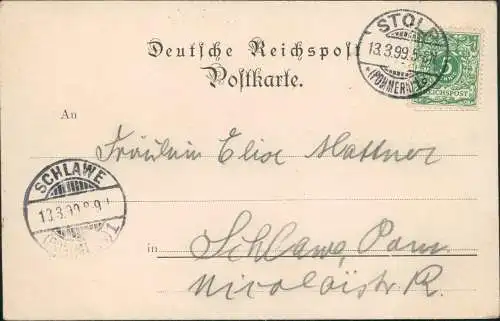 Deutsche Reichspost
Postkarte.
STOLP
13.3.99.5-6
*(POMMERN)1c
5
REICHSPOST
An
Fräulein Elise Mattner
SCHLAWE
13.3.99.8-9
in Schlawe, Pom.
Nicolaistr.